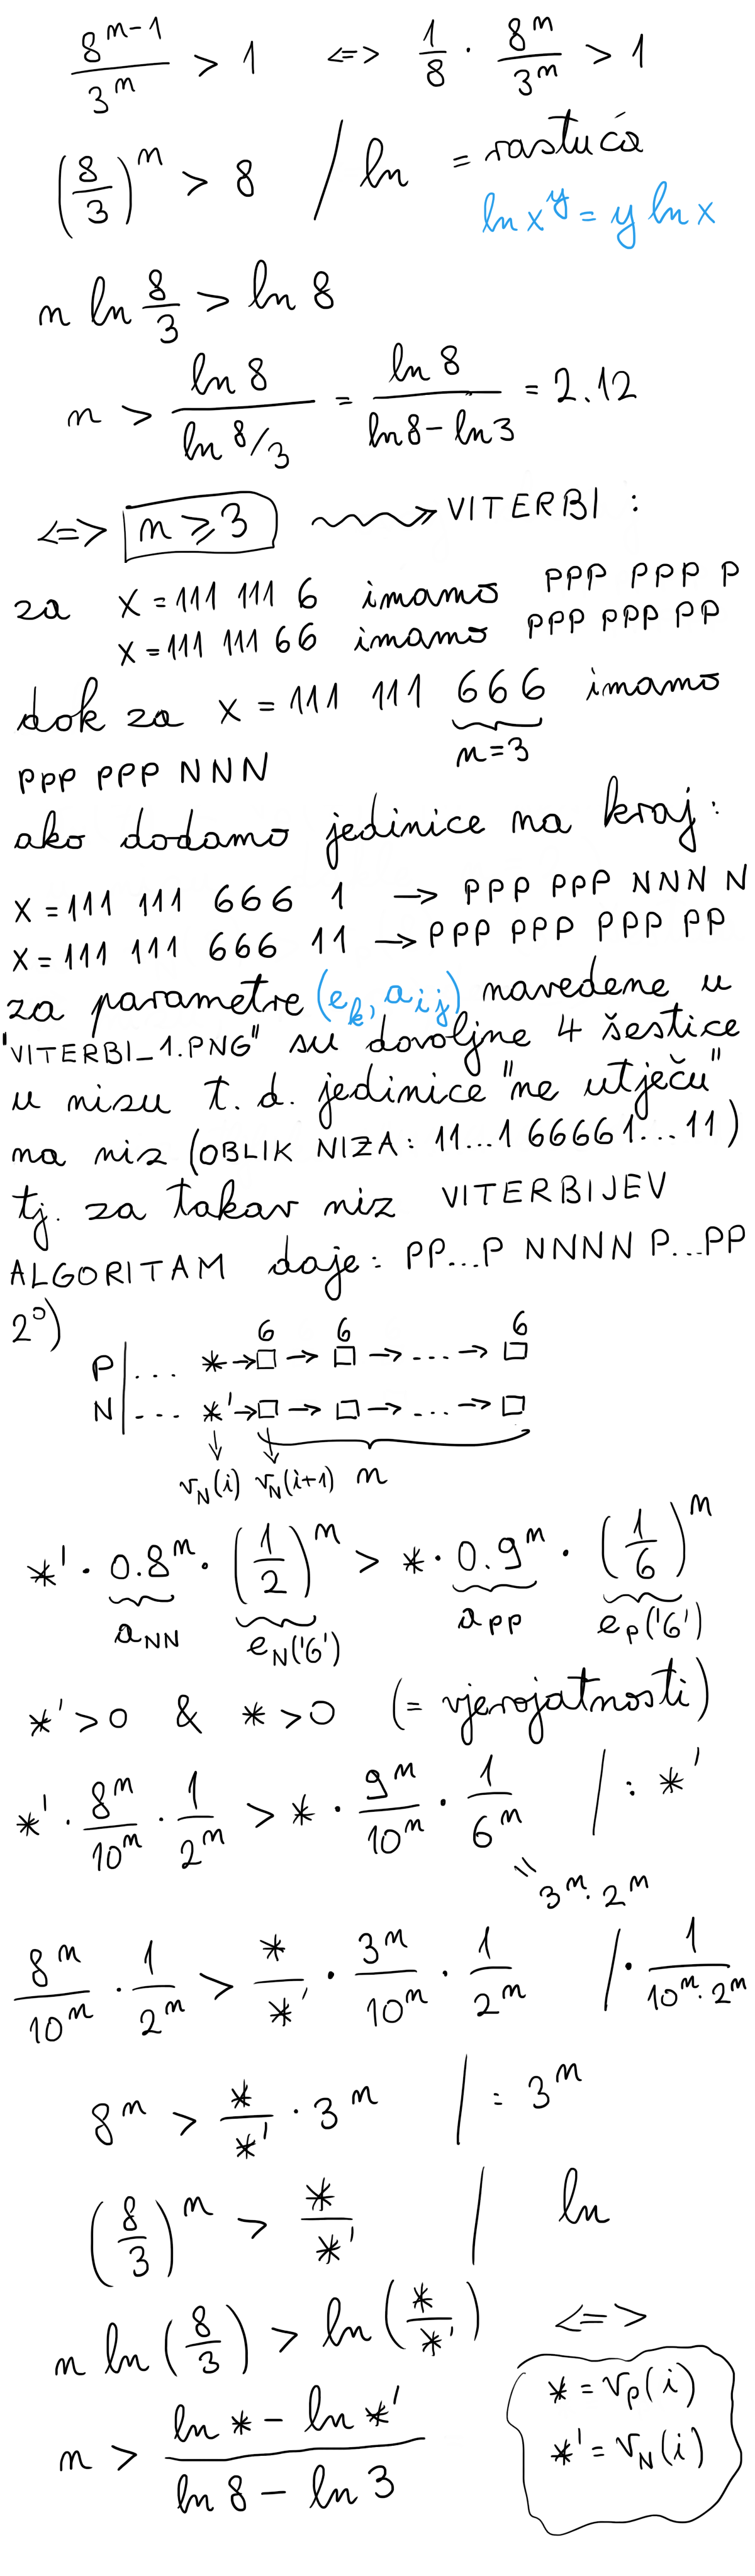 8^(n-1) / 3^n > 1 <=> 1/8 · 8^n / 3^n > 1
(8/3)^n > 8 / ln = rastuća
ln x^y = y ln x
n ln 8/3 > ln 8
n > ln 8 / ln 8/3 = ln 8 / (ln 8 - ln 3) = 2.12
<=> n ≥ 3 ⟿ VITERBI :
za X = 111 111 6 imamo PPP PPP P
X = 111 111 66 imamo PPP PPP PP
dok za X = 111 111 666 imamo
n=3
PPP PPP NNN
ako dodamo jedinice na kraj:
X = 111 111 666 1 → PPP PPP NNN N
X = 111 111 666 11 → PPP PPP PPP PP
za parametre (e_k, a_ij) navedene u
"VITERBI_1.PNG" su dovoljne 4 šestice
u nizu t. d. jedinice "ne utječu"
na niz (OBLIK NIZA: 11...1 66661...11)
tj. za takav niz VITERBIJEV
ALGORITAM daje: PP...P NNNN P...PP
2°)
6 6 6
P | ... * → □ → □ → ... → □
N | ... *' → □ → □ → ... → □
↓ ↓
v_N(i) v_N(i+1) n
*' · 0.8^n · (1/2)^n > * · 0.9^n · (1/6)^n
a_NN e_N('6') a_PP e_P('6')
*' > 0 & * > 0 (= vjerojatnosti)
*' · 8^n / 10^n · 1 / 2^n > * · 9^n / 10^n · 1 / 6^n / : *'
= 3^n · 2^n
8^n / 10^n · 1 / 2^n > * / *' · 3^n / 10^n · 1 / 2^n / · 1 / (10^n · 2^n)
8^n > * / *' · 3^n / : 3^n
(8/3)^n > * / *' / ln
n ln (8/3) > ln (* / *') <=>
n > (ln * - ln *') / (ln 8 - ln 3)
* = v_P(i)
*' = v_N(i)